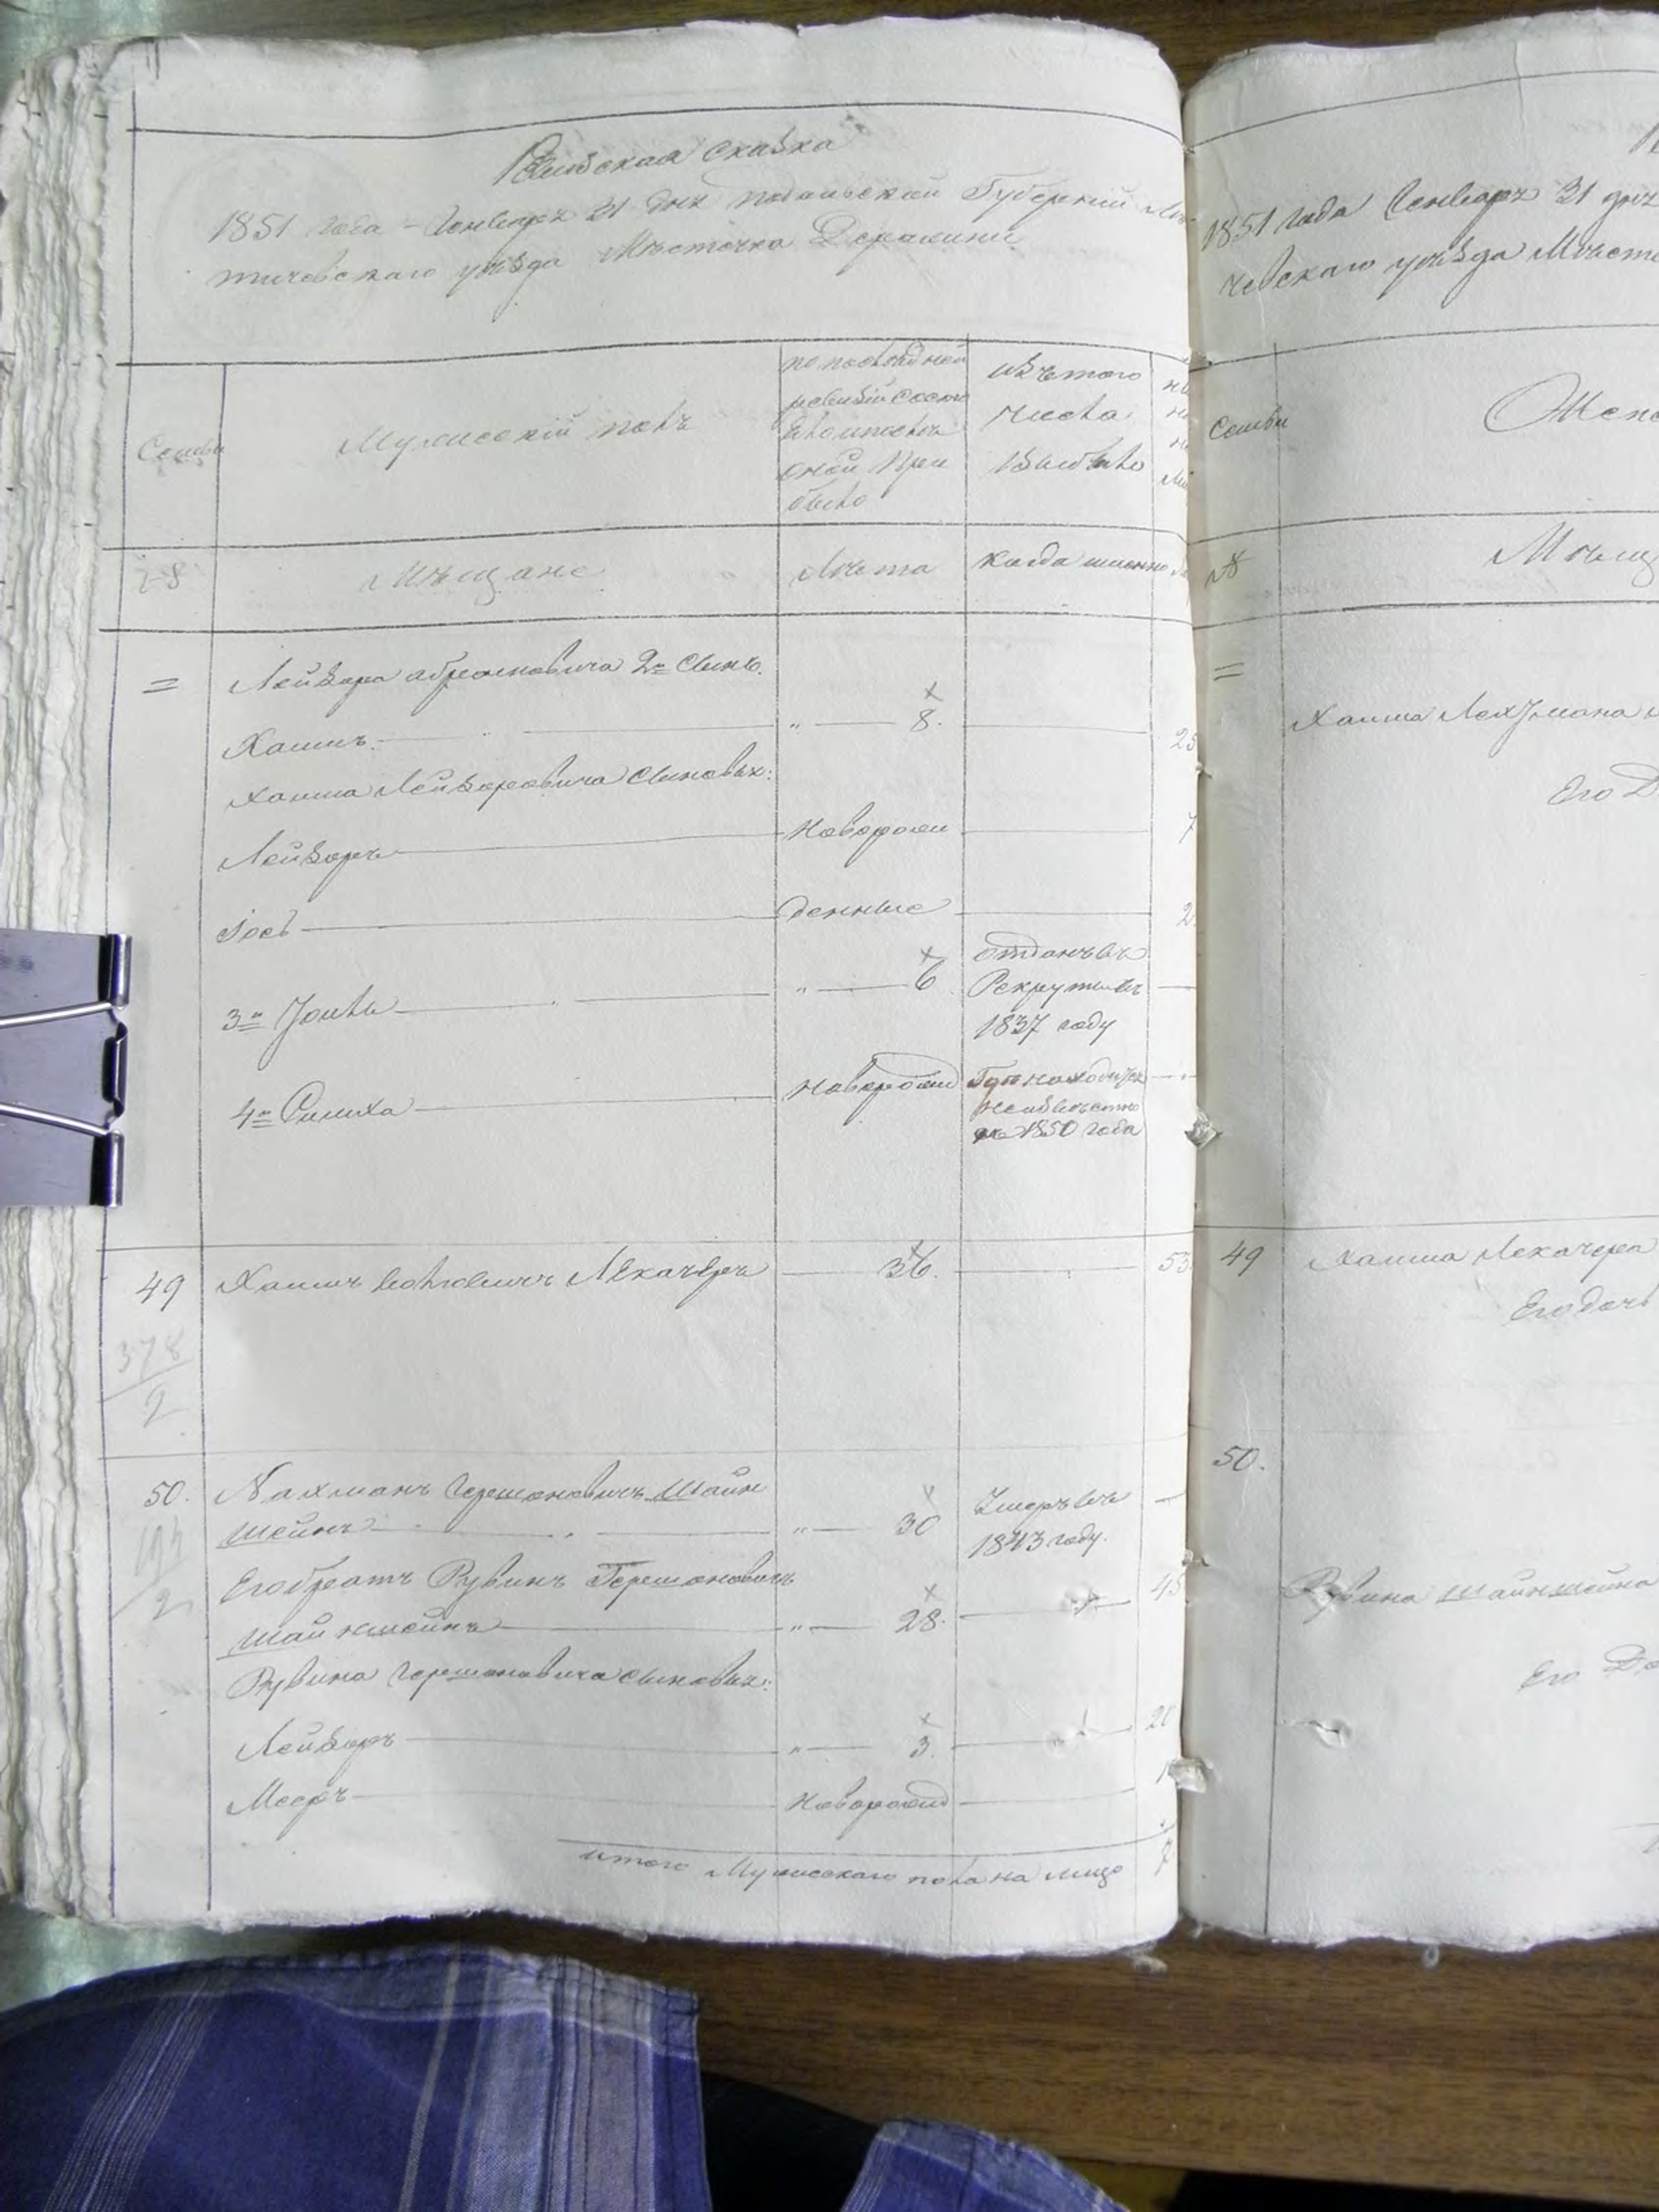 Ревизская сказка
1851 года Генваря 31 дня Подольской Губернии
тичевскаго уѣзда Мѣстечка Деражни
Семьи
Мужескій полъ
по последней
ревизіи состо
яло и послѣ
оной при
было
изъ того
числа
выбыло
Мѣщане
Лѣта
когда именно
=
Лейзора Абрамовича 2й сынъ
Хаимъ
" 8.
Хаима Лейзоровича сыновья:
Лейзоръ
новорож
7
Іось
денные
2
3й
" 6
отданъ въ
Рекруты въ
1837 году
4й
новорожд
находится
неизвѣстно
1850 года
49
Хаимъ
36.
53
378
2
50.
Нахманъ Гершоновичъ Шайн
шейнъ
" 30
Умеръ въ
1843 году.
Его братъ Рувинъ Гершоновичъ
Шайншейнъ
" 28.
Рувина Гершоновича сыновья:
Лейзоръ
" 3.
Мееръ
новорожд
итого Мужескаго пола на лицо
1851 года Генваря 31 дня
чевскаго уѣзда Мѣсте
Семьи
Женс
№
Мѣщ
=
Хаима
Его Д
49
Хаима
Его дочь
50.
Рувина Шайншейна
Его До